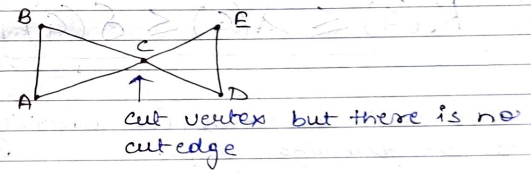 B E
C
A D
cut vertex but there is no
cut edge